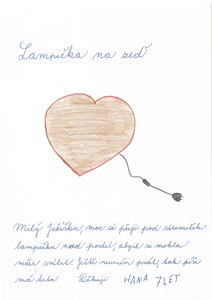 Lampička na zeď
Milý Ježíšku, moc si přeji pod stromeček
lampičku nad postel, abych si mohla
něco svítit. Ještě neumím psát, tak píše
má teta Děkuji HANA 7 LET